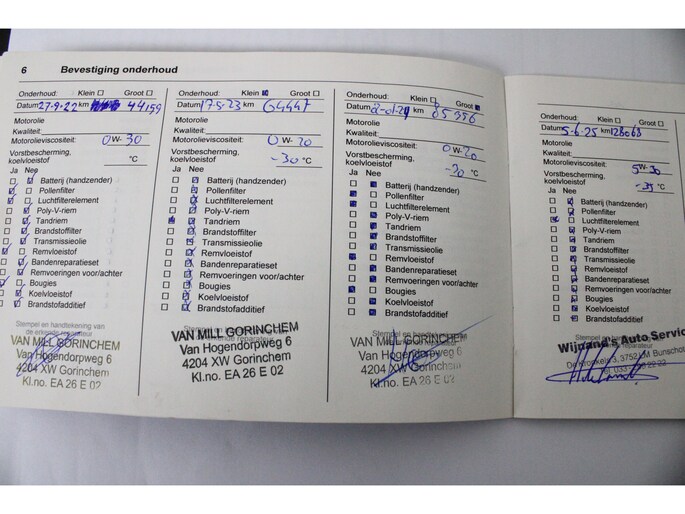 6 Bevestiging onderhoud
Onderhoud: Klein Groot
Datum 27-9-22 km 44159
Motorolie
Kwaliteit:
Motorolieviscositeit: 0 W- 30
Vorstbescherming,
koelvloeistof °C
Ja Nee
Batterij (handzender)
Pollenfilter
Luchtfilterelement
Poly-V-riem
Tandriem
Brandstoffilter
Transmissieolie
Remvloeistof
Bandenreparatieset
Remvoeringen voor/achter
Bougies
Koelvloeistof
Brandstofadditief
Stempel en handtekening van
de erkende reparateur
VAN MILL GORINCHEM
Van Hogendorpweg 6
4204 XW Gorinchem
Kl.no. EA 26 E 02
Onderhoud: Klein Groot
Datum 17-5-23 km 64447
Motorolie
Kwaliteit:
Motorolieviscositeit: 0 W- 20
Vorstbescherming,
koelvloeistof -30 °C
Ja Nee
Batterij (handzender)
Pollenfilter
Luchtfilterelement
Poly-V-riem
Tandriem
Brandstoffilter
Transmissieolie
Remvloeistof
Bandenreparatieset
Remvoeringen voor/achter
Bougies
Koelvloeistof
Brandstofadditief
VAN MILL GORINCHEM
Van Hogendorpweg 6
4204 XW Gorinchem
Kl.no. EA 26 E 02
Onderhoud: Klein Groot
Datum km 85356
Motorolie
Kwaliteit:
Motorolieviscositeit: 0 W- 20
Vorstbescherming,
koelvloeistof -30 °C
Ja Nee
Batterij (handzender)
Pollenfilter
Luchtfilterelement
Poly-V-riem
Tandriem
Brandstoffilter
Transmissieolie
Remvloeistof
Bandenreparatieset
Remvoeringen voor/achter
Bougies
Koelvloeistof
Brandstofadditief
VAN MILL GORINCHEM
Van Hogendorpweg 6
4204 XW Gorinchem
Kl.no. EA 26 E 02
Onderhoud: Klein Groot
Datum 5-6-25 km 128068
Motorolie
Kwaliteit:
Motorolieviscositeit: 5 W- 30
Vorstbescherming,
koelvloeistof -35 °C
Ja Nee
Batterij (handzender)
Pollenfilter
Luchtfilterelement
Poly-V-riem
Tandriem
Brandstoffilter
Transmissieolie
Remvloeistof
Bandenreparatieset
Remvoeringen voor/achter
Bougies
Koelvloeistof
Brandstofadditief
Wijnand's Auto Servic
De Kronkels 3, 3752 LM Bunschot